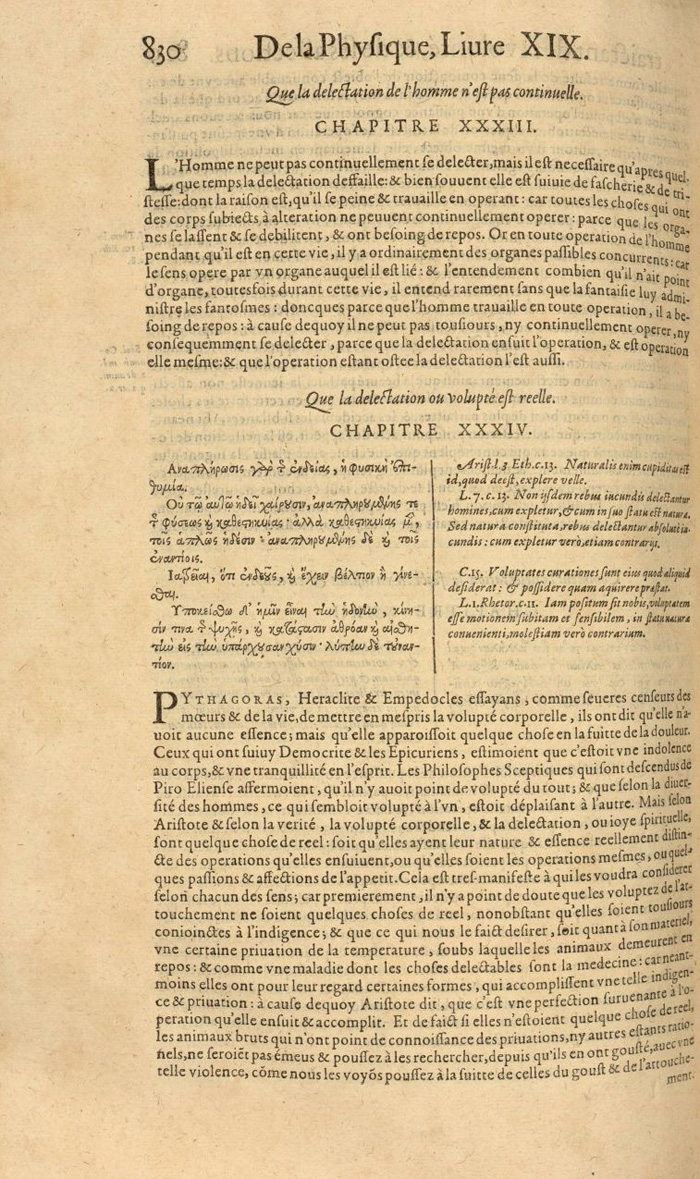 830 De la Phyſique, Liure XIX.
Que la delectation de l'homme n'eſt pas continuelle.
CHAPITRE XXXIII.
L'Homme ne peut pas continuellement ſe delecter, mais il eſt neceſſaire qu'apres quel-
que temps la delectation deffaille: & bien ſouuent elle eſt ſuiuie de faſcherie & de tri-
ſteſſe: dont la raiſon eſt, qu'il ſe peine & trauaille en operant : car toutes les choſes qui ont
des corps ſubiects à alteration ne peuuent continuellement operer: parce que les orga-
nes ſe laſſent & ſe debilitent, & ont beſoing de repos. Or en toute operation de l'homme
pendant qu'il eſt en cette vie, il y a ordinairement des organes paſſibles concurrents: car
le ſens opere par vn organe auquel il eſt lié : & l'entendement combien qu'il n'ait point
d'organe, toutesfois durant cette vie, il entend rarement ſans que la fantaiſie luy admi-
niſtre les fantoſmes : doncques parce que l'homme trauaille en toute operation, il a be-
ſoing de repos : à cauſe dequoy il ne peut pas touſiours, ny continuellement operer, ny
conſequemment ſe delecter, parce que la delectation enſuit l'operation, & eſt operation
elle meſme: & que l'operation eſtant oſtee la delectation l'eſt auſſi.
Que la delectation ou volupté eſt reelle.
CHAPITRE XXXIV.
Αναπλήρωσις γὰρ τ̃ ἐνδείας, ἡ φυσικὴ ἐπι-
θυμία.
Οὐ τῷ αὐτῷ ἡδεῖ χαίρουσιν, ἀναπληρουμένης τε
τ̃ φύσεως ϗ καθεστηκυίας · ἀλλὰ καθεστηκυίας μ̃,
τοῖς ἁπλῶς ἡδέσιν · ἀναπληρουμένης δὲ ϗ τοῖς
ἐναντίοις.
Ἰατρεῖαι, ὅτι ἐνδεοῦς, ϗ ἔχειν βέλτιον ἢ γίνε-
σθαι.
Υποκείσθω δ' ἡμῖν εἶναι τὴν ἡδονὴν, κίνη-
σίν τινα τ̃ ψυχῆς, ϗ κατάστασιν ἀθρόαν ϗ αἰσθη-
τὴν εἰς τὴν ὑπάρχουσαν φύσιν · λύπην δὲ τοὐναν-
τίον.
Ariſt. l. 3 Eth. c. 13. Naturalis enim cupiditas eſt
id, quod deeſt, explere velle.
L. 7. c. 13. Non iiſdem rebus iucundis delectantur
homines, cum expletur, & cum in ſuo ſtatu eſt natura.
Sed natura conſtituta, rebus delectantur abſolutè iu-
cundis : cum expletur verò, etiam contrarijs.
C. 15. Voluptates curationes ſunt eius quod aliquid
deſiderat : & poſſidere quam aquirere præſtat.
L. 1. Rhetor. c. 11. Iam poſitum ſit nobis, voluptatem
eſſe motionem ſubitam et ſenſibilem, in ſtatu natura
conuenienti, moleſtiam verò contrarium.
PYTHAGORAS, Heraclite & Empedocles eſſayans, comme ſeueres cenſeurs des
mœurs & de la vie, de mettre en meſpris la volupté corporelle, ils ont dit qu'elle n'a-
uoit aucune eſſence; mais qu'elle apparoiſſoit quelque choſe en la fuitte de la douleur.
Ceux qui ont ſuiuy Democrite & les Epicuriens, eſtimoient que c'eſtoit vne indolence
au corps, & vne tranquillité en l'eſprit. Les Philoſophes Sceptiques qui ſont deſcendus de
Piro Elienſe affermoient, qu'il n'y auoit point de volupté du tout; & que ſelon la diuer-
ſité des hommes, ce qui ſembloit volupté à l'vn, eſtoit déplaiſant à l'autre. Mais ſelon
Ariſtote & ſelon la verité, la volupté corporelle, & la delectation, ou ioye ſpirituelle,
ſont quelque choſe de reel : ſoit qu'elles ayent leur nature & eſſence reellement diſtin-
cte des operations qu'elles enſuiuent, ou qu'elles ſoient les operations meſmes, ou quel-
ques paſſions & affections de l'appetit. Cela eſt tres-manifeſte à qui les voudra conſiderer
ſelon chacun des ſens; car premierement, il n'y a point de doute que les voluptez de l'at-
touchement ne ſoient quelques choſes de reel, nonobſtant qu'elles ſoient touſiours
conioinctes à l'indigence; & que ce qui nous le faict deſirer, ſoit quant à ſon materiel,
vne certaine priuation de la temperature, ſoubs laquelle les animaux demeurent en
repos : & comme vne maladie dont les choſes delectables ſont la medecine : car neant-
moins elles ont pour leur regard certaines formes, qui accompliſſent vne telle indigen-
ce & priuation : à cauſe dequoy Ariſtote dit, que c'eſt vne perfection ſuruenante à l'o-
peration qu'elle enſuit & accomplit. Et de faict ſi elles n'eſtoient quelque choſe de reel,
les animaux bruts qui n'ont point de connoiſſance des priuations, ny autres eſtants ratio-
nels, ne ſeroiẽt pas émeus & pouſſez à les rechercher, depuis qu'ils en ont gouſté, auec vne
telle violence, cõme nous les voyõs pouſſez à la ſuitte de celles du gouſt & de l'attouche-
ment.